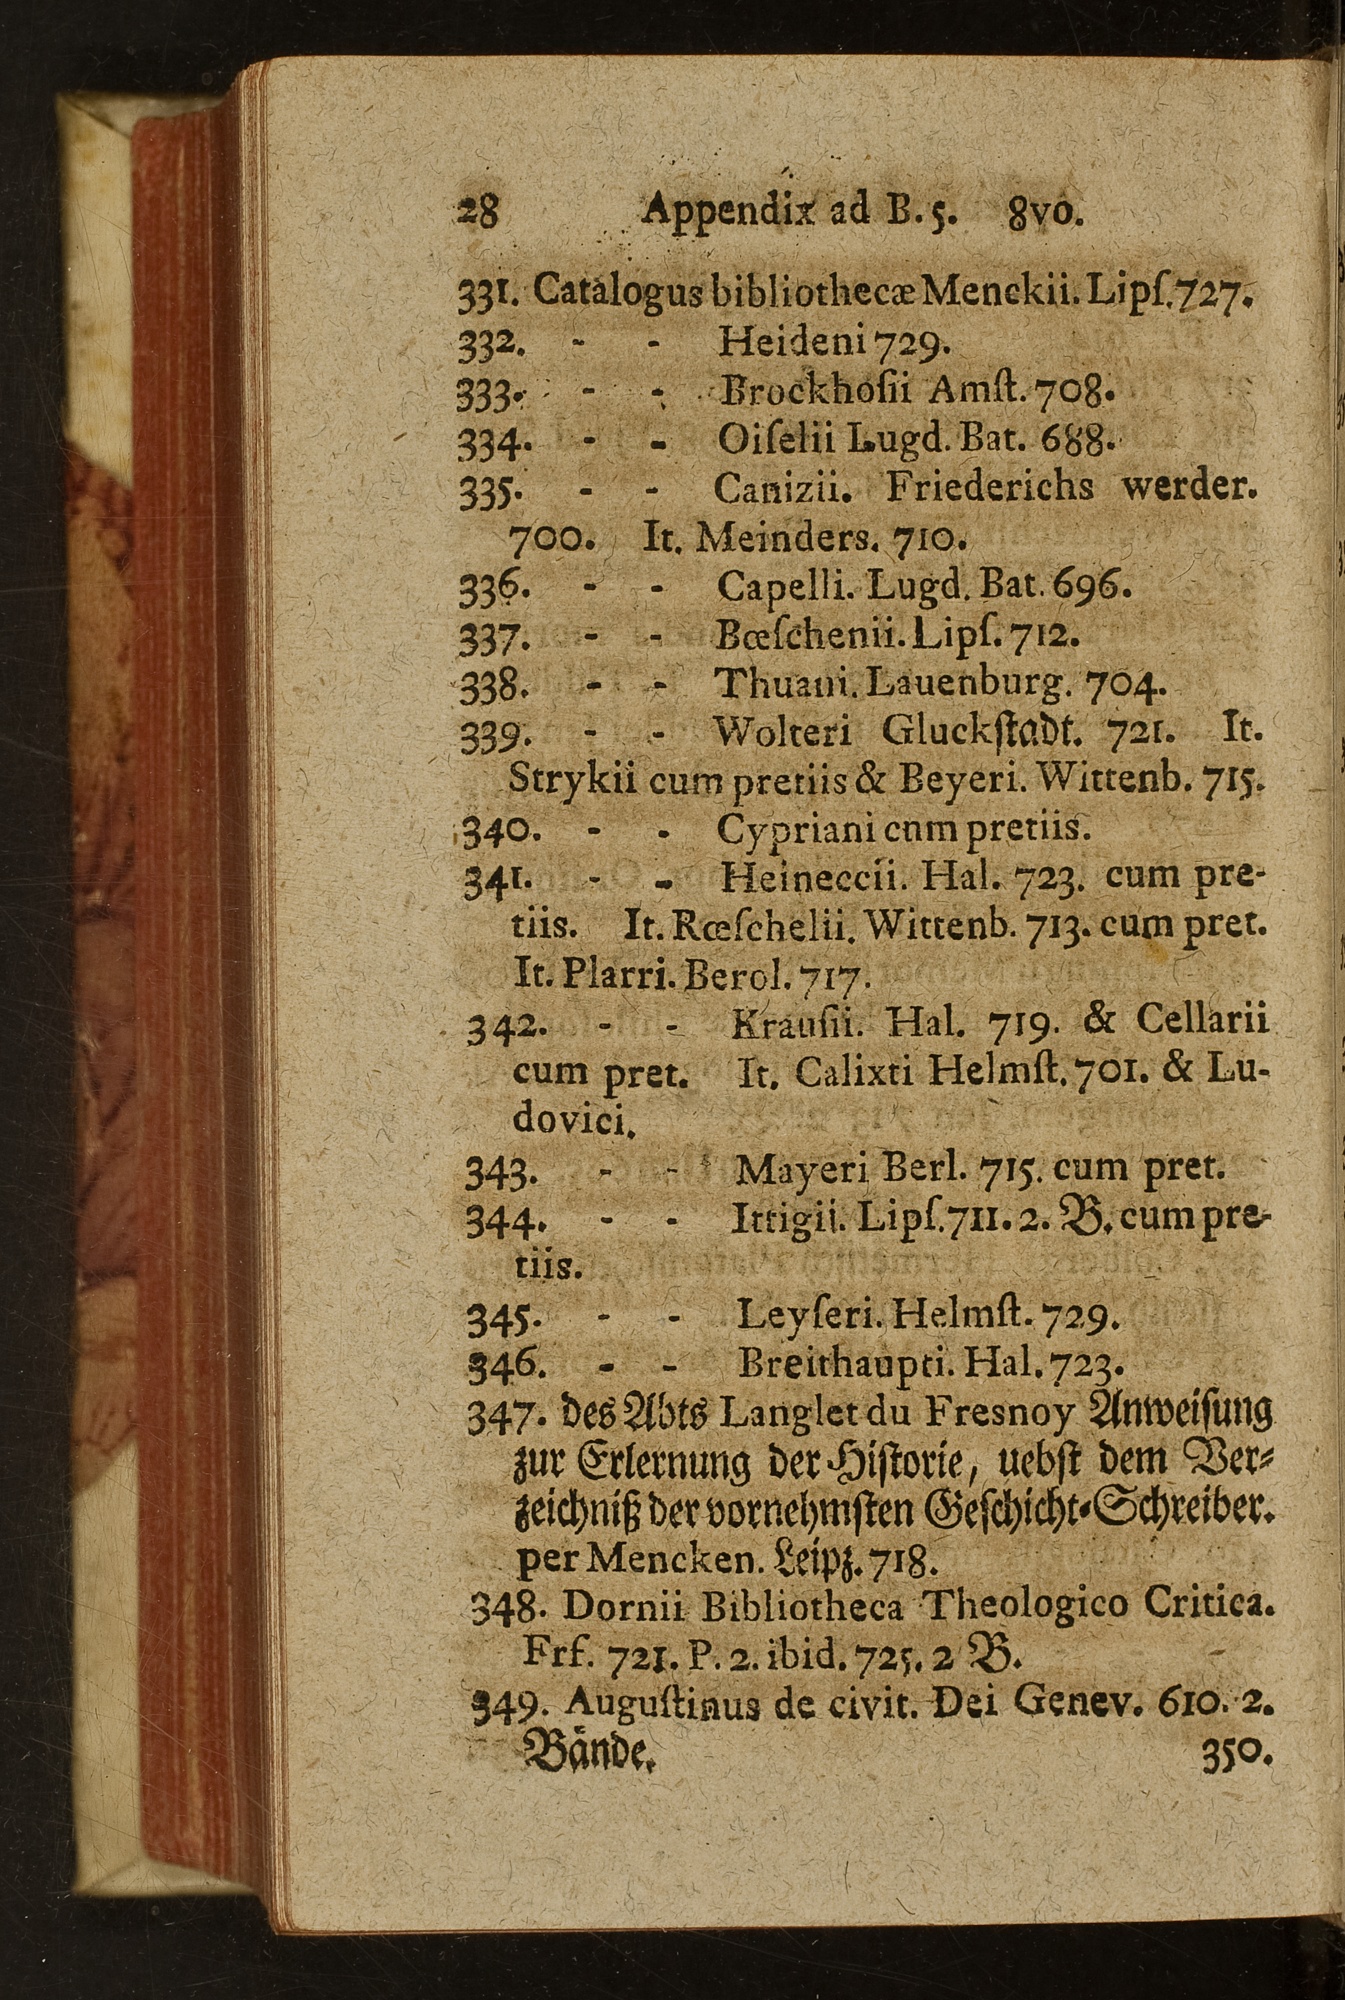 28 Appendix ad B. 5. 8vo.
331. Catalogus bibliothecæ Menckii. Lipſ. 727.
332. - - Heideni 729.
333. - - Brockhoſii Amſt. 708.
334. - - Oiſelii Lugd. Bat. 688.
335. - - Canizii. Friederichs werder.
700. It. Meinders. 710.
336. - - Capelli. Lugd. Bat. 696.
337. - - Bœſchenii. Lipſ. 712.
338. - - Thuani. Lauenburg. 704.
339. - - Wolteri Gluckſtadt. 721. It.
Strykii cum pretiis & Beyeri. Wittenb. 715.
340. - - Cypriani cnm pretiis.
341. - - Heineccii. Hal. 723. cum pre-
tiis. It. Rœſchelii. Wittenb. 713. cum pret.
It. Plarri. Berol. 717.
342. - - Krauſii. Hal. 719. & Cellarii
cum pret. It. Calixti Helmſt. 701. & Lu-
dovici.
343. - - Mayeri Berl. 715. cum pret.
344. - - Ittigii. Lipſ. 711. 2. B. cum pre-
tiis.
345. - - Leyſeri. Helmſt. 729.
346. - - Breithaupti. Hal. 723.
347. des Abts Langlet du Fresnoy Anweiſung
zur Erlernung der Hiſtorie, uebſt dem Ver-
zeichniß der vornehmſten Geſchicht-Schreiber.
per Mencken. Leipz. 718.
348. Dornii Bibliotheca Theologico Critica.
Frf. 721. P. 2. ibid. 725. 2 B.
349. Auguſtinus de civit. Dei Genev. 610. 2.
Bände. 350.